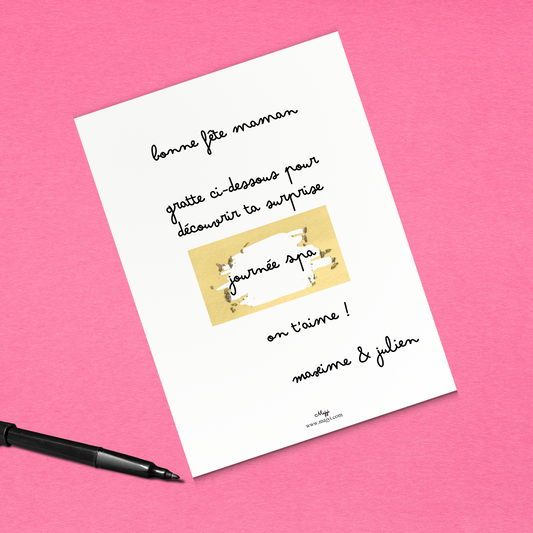 bonne fête maman
gratte ci-dessous pour
découvrir ta surprise
journée spa
on t'aime !
maxime & julien
www.majyi.com